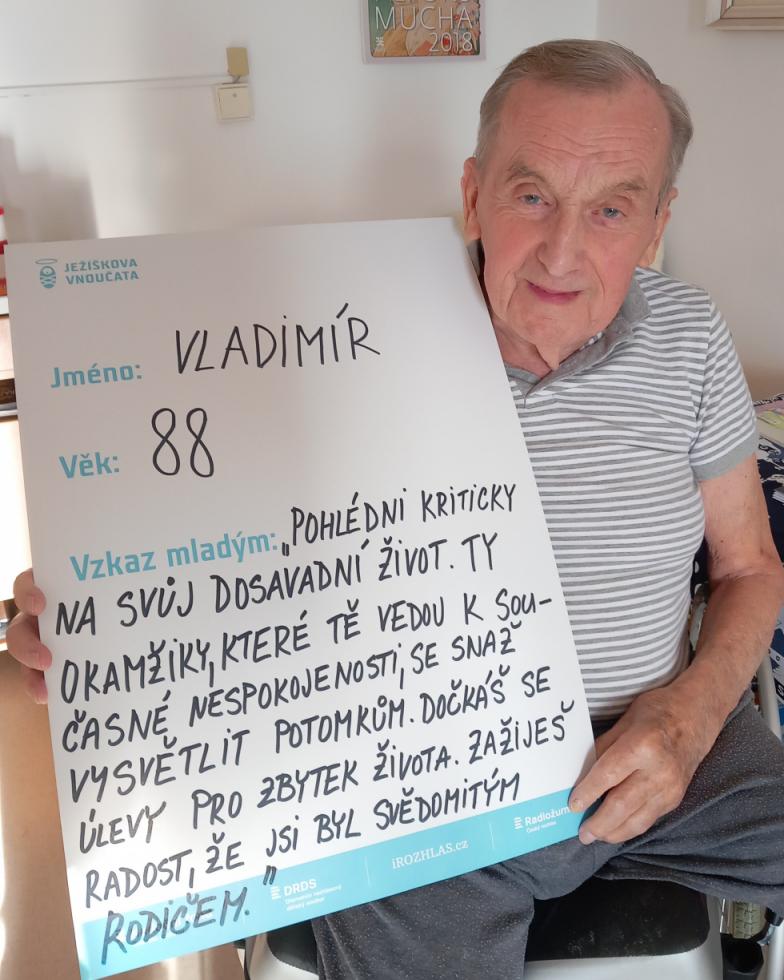 MUCHA
2018
JEŽÍŠKOVA
VNOUČATA
Jméno: VLADIMÍR
Věk: 88
Vzkaz mladým: „POHLÉDNI KRITICKY
NA SVŮJ DOSAVADNÍ ŽIVOT. TY
OKAMŽIKY, KTERÉ TĚ VEDOU K SOU-
ČASNÉ NESPOKOJENOSTI, SE SNAŽ
VYSVĚTLIT POTOMKŮM. DOČKÁŠ SE
ÚLEVY PRO ZBYTEK ŽIVOTA. ZAŽIJEŠ
RADOST, ŽE JSI BYL SVĚDOMITÝM
RODIČEM."
DRDS
iROZHLAS.cz
Radiožurn